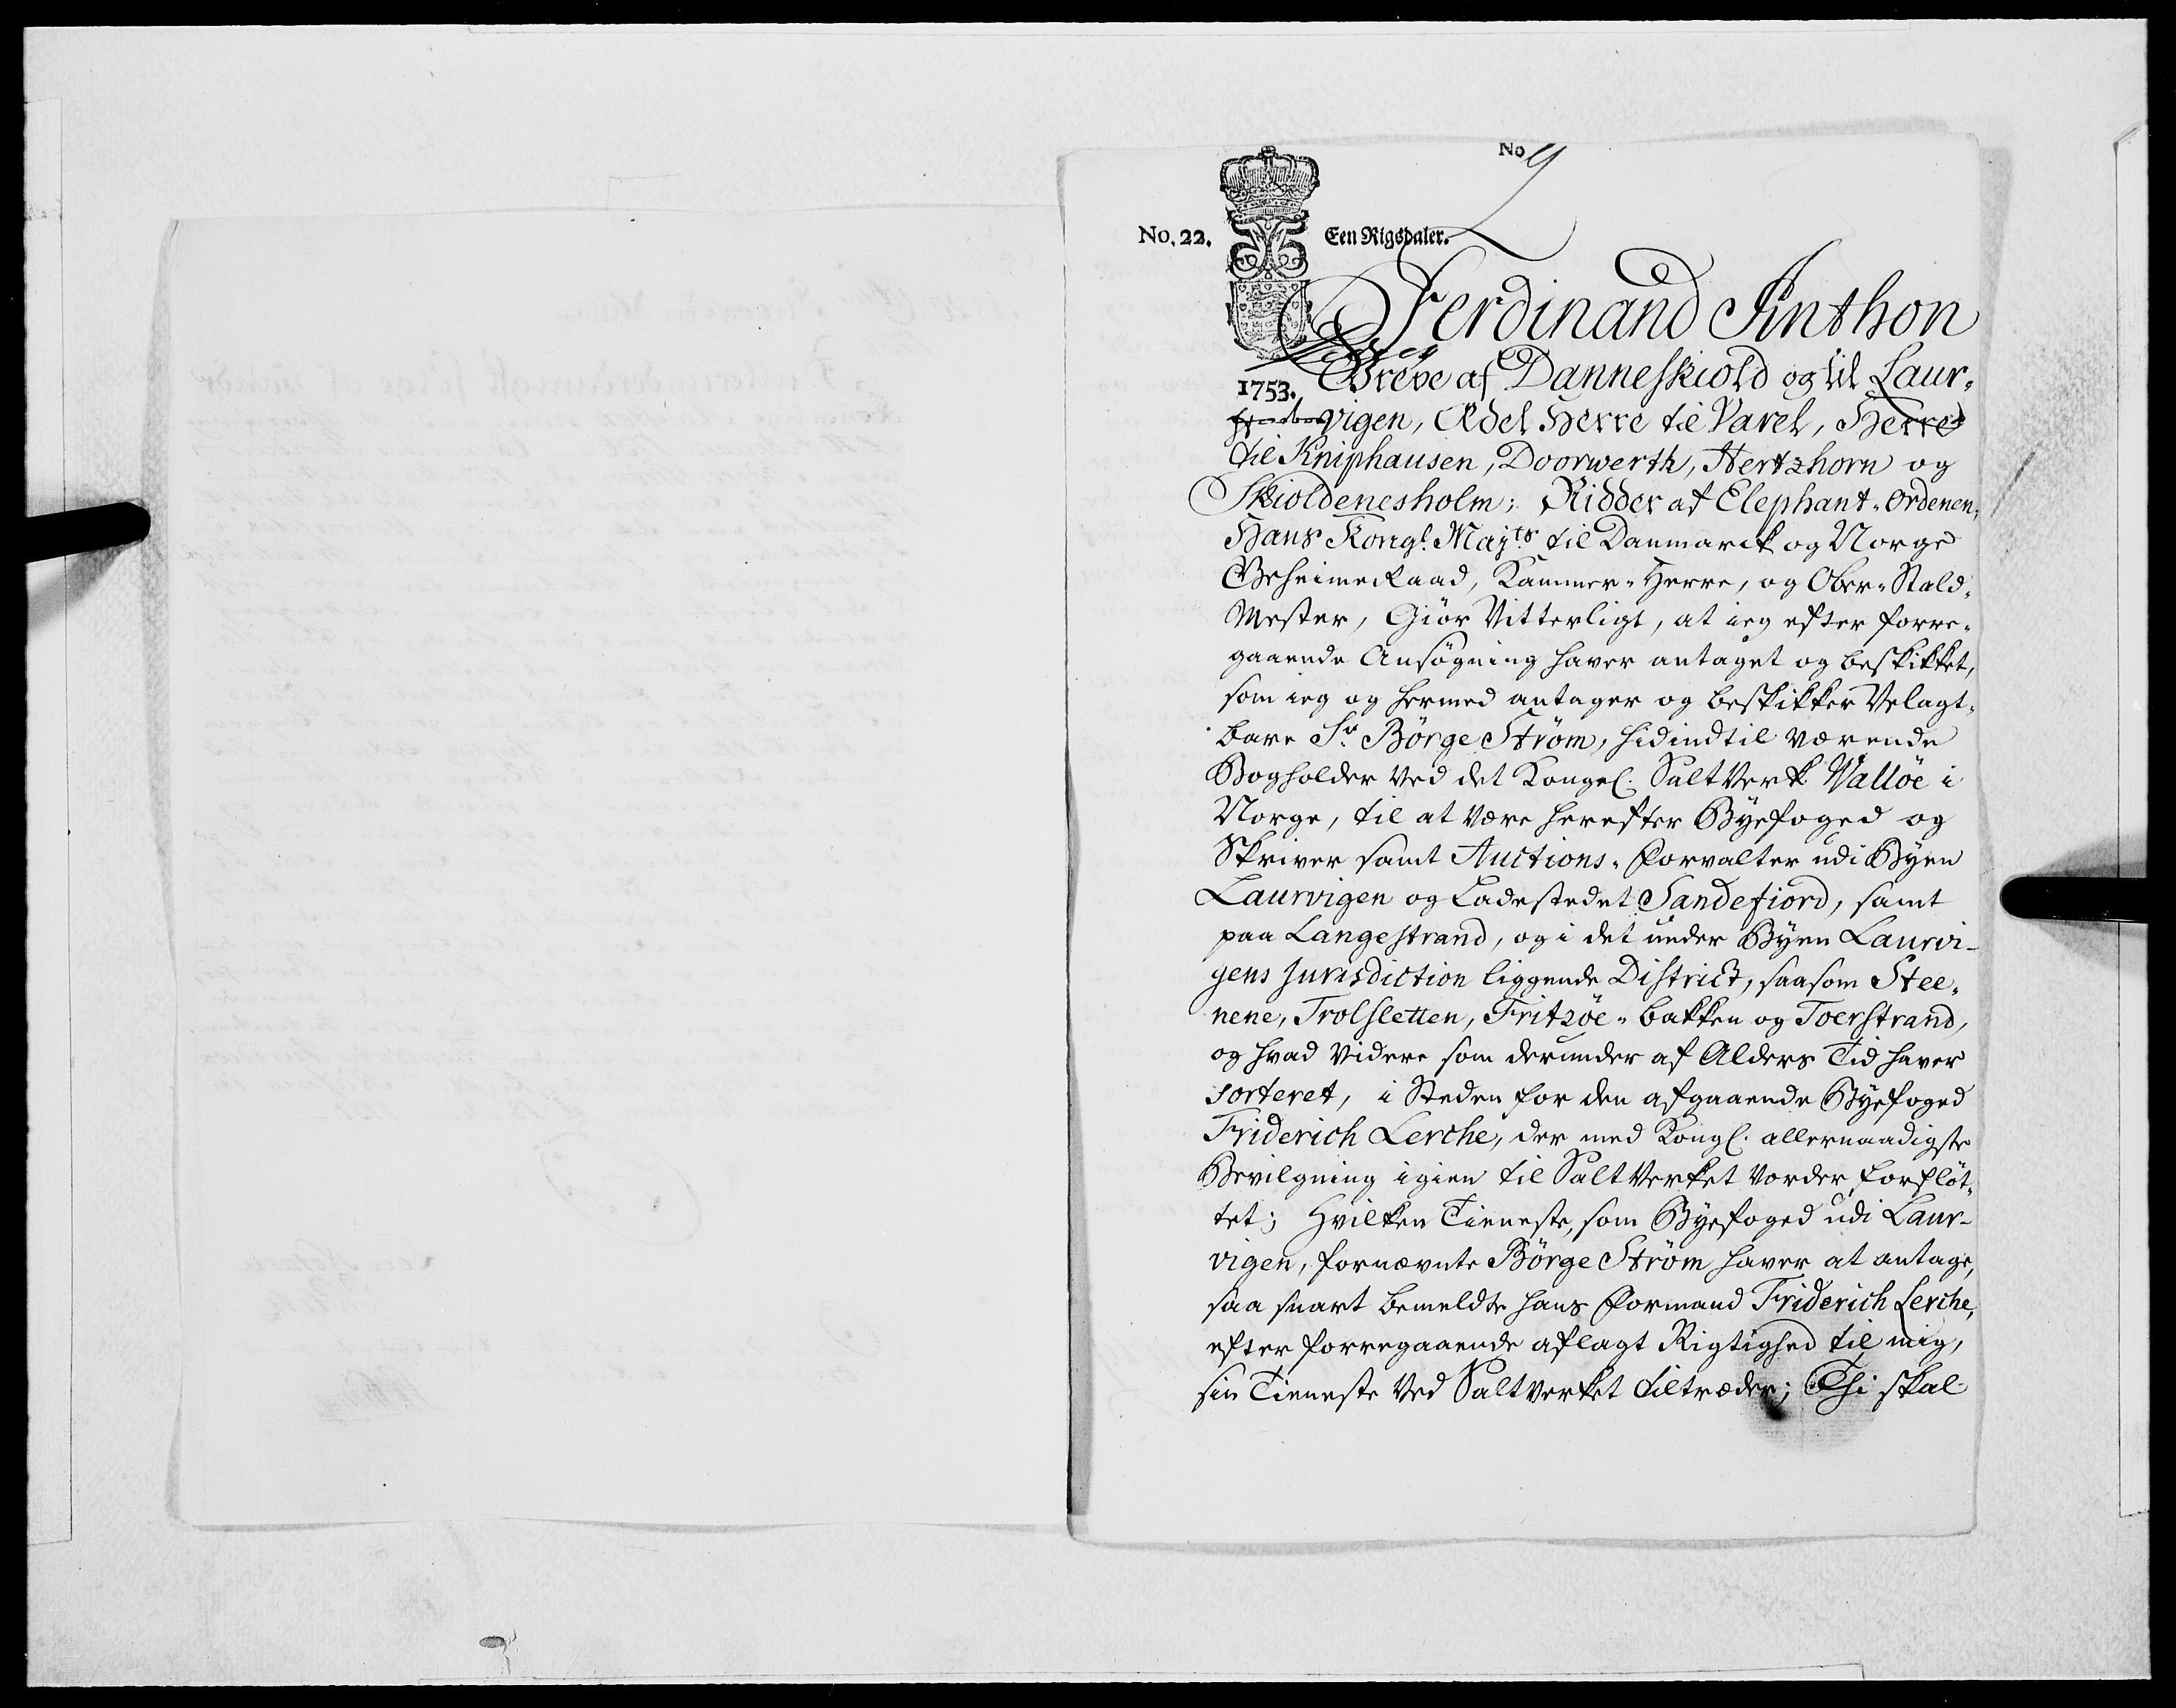 No 9
No. 22. Een Rigsdaler.
Ferdinand Anthon
1753. Greve af Danneskiold og til Laur-
vigen, Ædel Herre til Varel, Herre
til Kniphausen, Doorwerth, Hertzhorn og
Skioldenesholm; Ridder af Elephant-Ordenen,
Hans Kongl. Majts til Danmarck og Norge
Geheimeraad, Kammer-Herre, og Ober-Stald-
Mester, Giör Vitterligt, at ieg efter forre-
gaaende Ansögning haver antaget og beskikket,
som ieg og hermed antager og beskikker Velagt-
bare Sr. Börge Ström, hidindtil værende
Bogholder ved det Kongel. Saltverk Valløe i
Norge, til at være herefter Byefoged og
Skriver samt Auctions-forvalter udi Byen
Laurvigen og Ladestedet Sandefiord, samt
paa Langestrand, og i det under Byen Laurvi-
gens Jurisdiction liggende District, saasom Stee-
nene, Trolsletten, Fritzöe-bakken og Toerstrand,
og hvad videre som derunder af Alders Tid haver
sorteret, i Steden for den afgaaende Byefoged
Friderich Lerche, der med Kongl. allernaadigste
Bevilgning igien til Saltverket vorder forflöt-
tet; Hvilken Tieneste, som Byefoged udi Laur-
vigen, fornævnte Börge Ström haver at antage,
saa snart bemeldte hans formand Friderich Lerche,
efter forregaaende aflagt Rigtighed til mig,
sin Tieneste ved Saltverket tiltræder; Thi skal